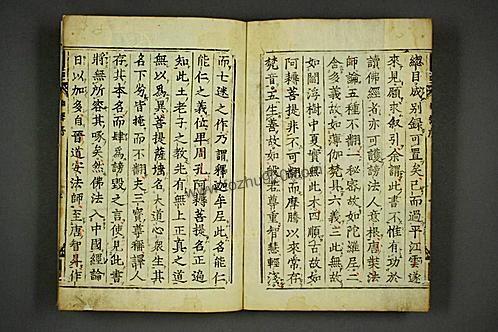 總目成別録可置矣已而過平江雲遂
來見願求叙引余謂此書不惟有功於
讀佛經者亦可護謗法人意根唐奘法
師論五種不翻一秘密故如陀羅尼二
含多義故如薄伽梵具六義三此無故
如閻浮樹中夏實無此木四順古故如
阿耨菩提非不可翻而摩騰以來常存
梵音五生善故如般若尊重智慧輕淺
而七迷之作乃謂釋迦牟尼此名能仁
能仁之義位卑周孔阿耨菩提名正遍
知此土老子之教先有無上正真之道
無以為異菩提薩埵名大道心衆生其
名下劣皆掩而不翻夫三寶尊稱譯人
存其本名而肆為謗毀之言使見此書
將無所容其啄矣然佛法入中國經論
日以加多自晉道安法師至唐智昇作